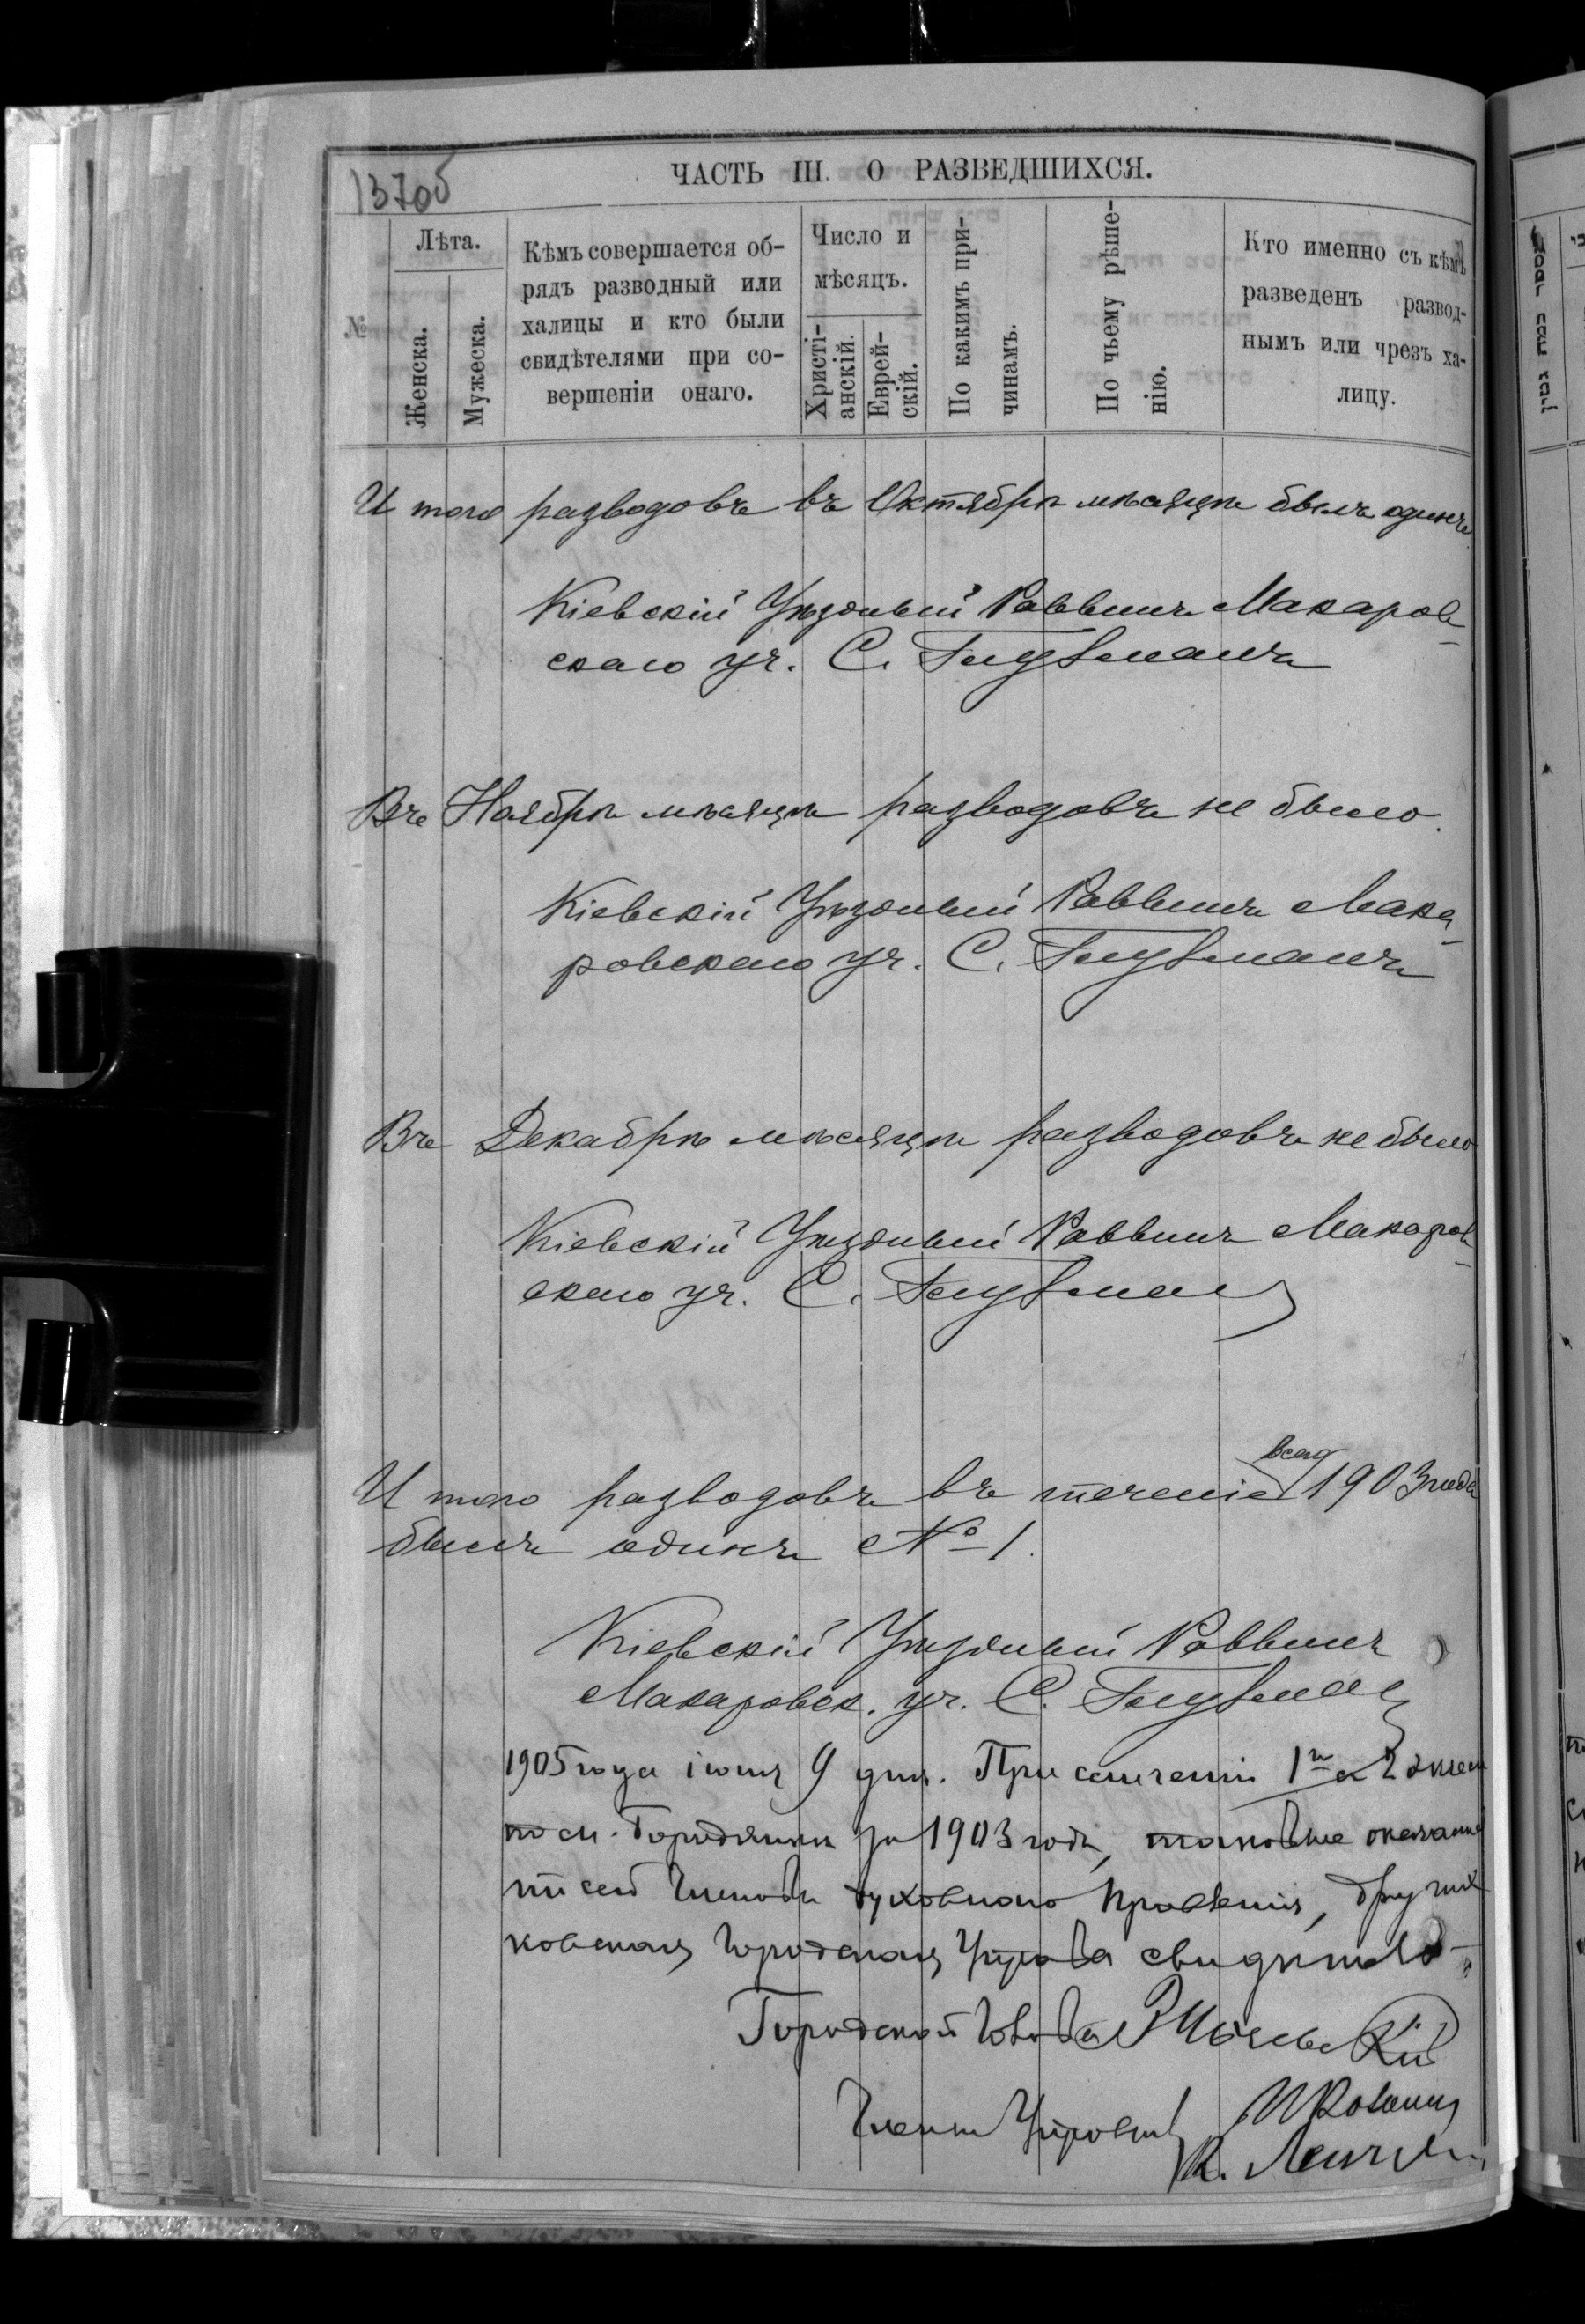 137об
ЧАСТЬ III. О РАЗВЕДШИХСЯ.
№
Лѣта.
Женска.
Мужеска.
Кѣмъ совершается об-
рядъ разводный или
халицы и кто были
свидѣтелями при со-
вершеніи онаго.
Число и
мѣсяцъ.
Христі-
анскій.
Еврей-
скій.
По какимъ при-
чинамъ.
По чьему рѣше-
нію.
Кто именно съ кѣмъ
разведенъ развод-
нымъ или чрезъ ха-
лицу.
И того разводовъ въ Октябрѣ мѣсяцѣ былъ одинъ
Кіевскій Уѣздный Раввинъ Макаров-
скаго уч. С. Гутманъ
Въ Ноябрѣ мѣсяцѣ разводовъ не было.
Кіевскій Уѣздный Раввинъ Мака-
ровскаго уч. С. Гутманъ
Въ Декабрѣ мѣсяцѣ разводовъ не было
Кіевскій Уѣздный Раввинъ Макаров-
скаго уч. С. Гутман
всего
И того разводовъ въ теченіе 1903 года
былъ одинъ № 1.
Кіевскій Уѣздный Раввинъ
Макаровск. уч. С. Гутман
1905 года іюня 9 дня. При сличеніи 1го
по м. за 1903 годъ, таковые
членовъ духовнаго Правленія,
Городская Управа
Городской Голова
Члены Управы